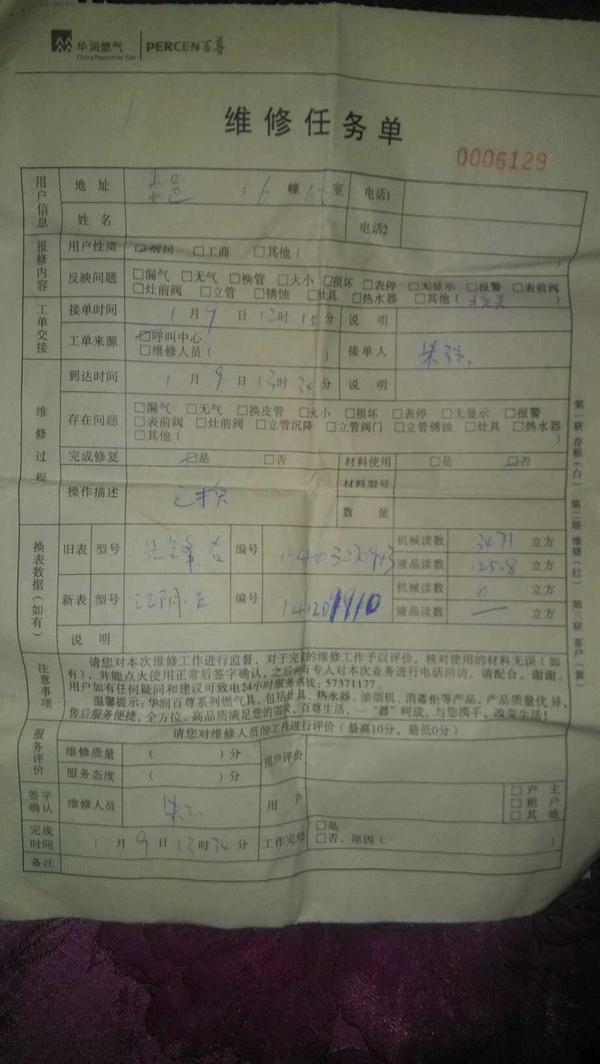 华润燃气 PERCEN百尊
China Resources Gas
维修任务单
0006129
用户信息 地址 幢 室 电话1
姓名 电话2
报修内容 用户性质 ☑居民 □工商 □其他( )
反映问题 □漏气 □无气 □换管 □火小 □损坏 □表停 □无显示 □报警 □表前阀
□灶前阀 □立管 □锈蚀 □灶具 □热水器 □其他( )
工单交接 接单时间 1月9日12时15分 说明
工单来源 ☑呼叫中心
□维修人员( ) 接单人
维修过程 到达时间 1月9日13时34分 说明
存在问题 □漏气 □无气 □换皮管 □火小 □损坏 □表停 □无显示 □报警
□表前阀 □灶前阀 □立管沉降 □立管阀门 □立管锈蚀 □灶具 □热水器
□其他( )
完成修复 ☑是 □否 材料使用 □是 ☑否
操作描述 已换 材料型号
数量
换表数据(如有) 旧表 型号 编号 机械读数 3471 立方
液晶读数 125.8 立方
新表 型号 编号 机械读数 0 立方
液晶读数 — 立方
说明
注意事项 请您对本次维修工作进行监督,对于完成的维修工作予以评价,核对使用的材料无误(如
有),并能点火使用正常后签字确认,之后将有专人对本次业务进行电话回访,请配合,谢谢。
用户如有任何疑问和建议可致电24小时服务热线:57371177
温馨提示:华润百尊系列燃气具,包括灶具、热水器、油烟机、消毒柜等产品,产品质量优异,
售后服务便捷,全方位、高品质满足您的需求,百尊生活,一“器”呵成,与您携手,改变生活!
服务评价 请您对维修人员的工作进行评价(最高10分,最低0分)
维修质量 ( )分 用户评价
服务态度 ( )分
签字确认 维修人员 用户 □户主
□租户
□其他
完成时间 1月9日13时34分 工作完结 □是
□否,原因( )
备注
第一联 存根(白) 第二联 维修(红) 第三联 客户(黄)